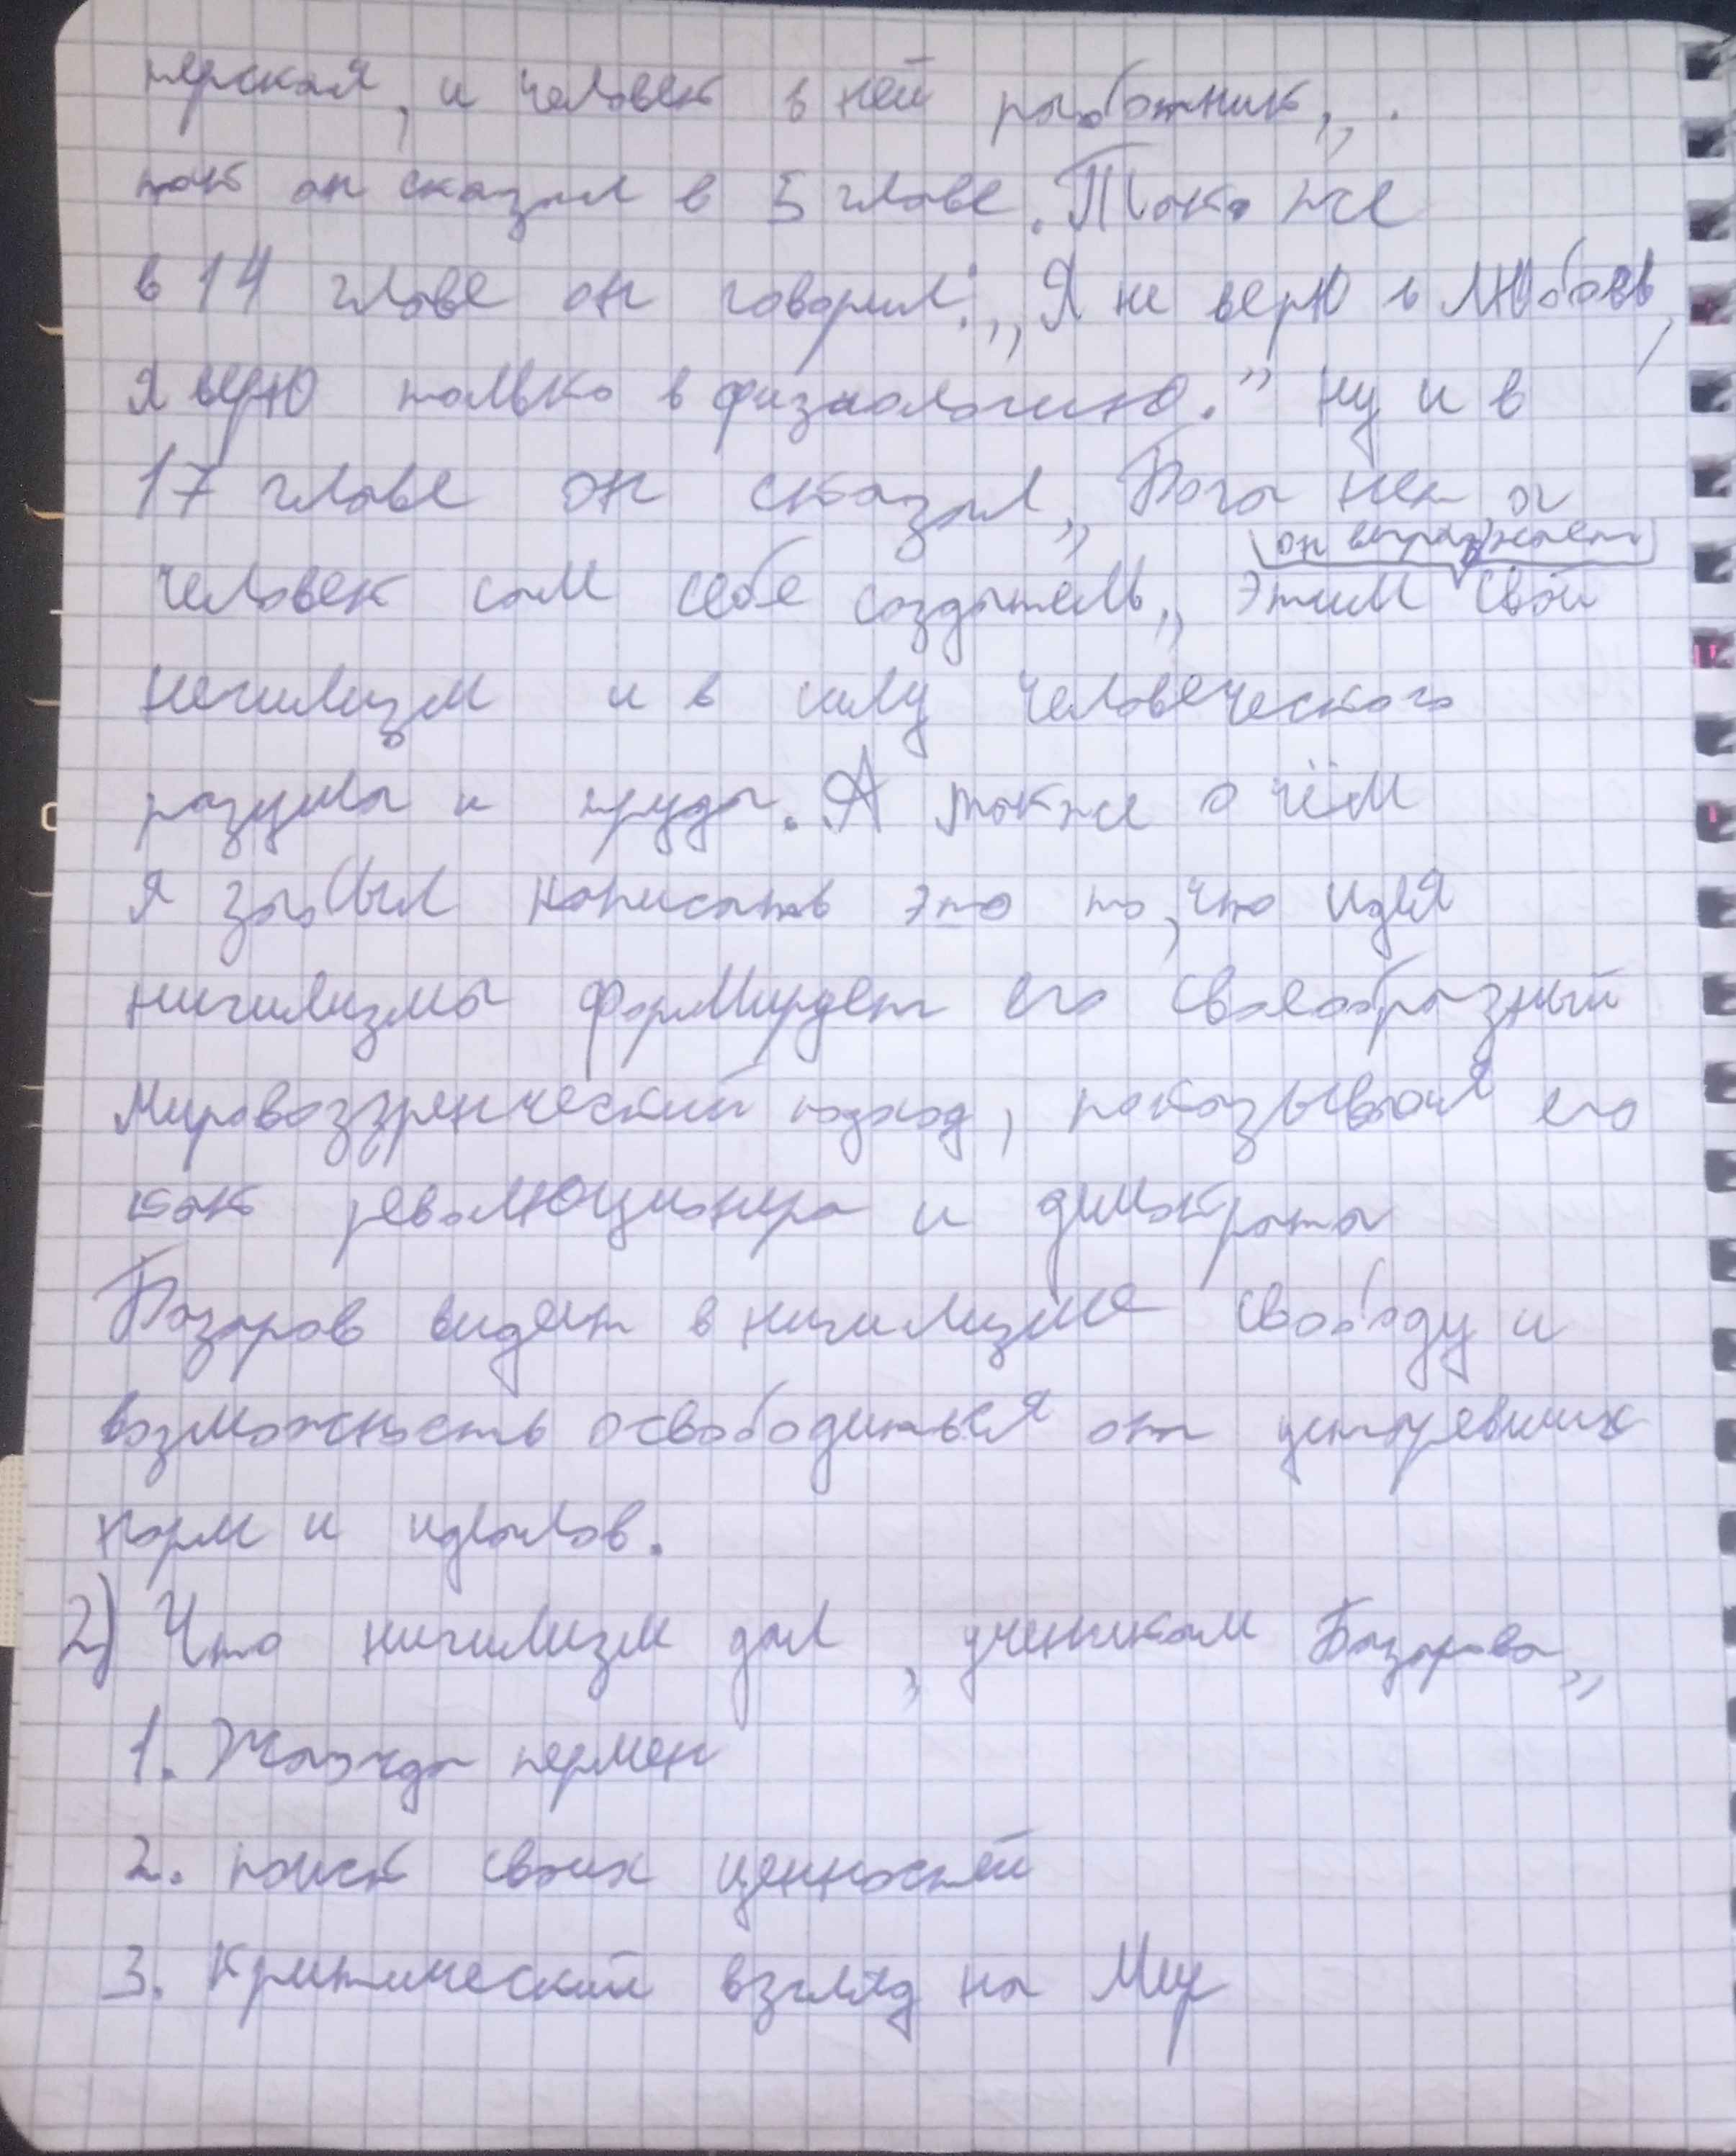 терская, и человек в ней работник„.
так он сказал в 5 главе. Так же
в 14 главе он говорил: „Я не верю в любовь,
я верю только в физиологию." ну и в
17 главе он сказал „Бога нет, а
он выражает
человек сам себе создатель„ этим свой
нигилизм и в силу человеческого
разума и труда. А также о чём
я забыл написать это то, что идея
нигилизма формирует его своеобразный
мировоззренческий подход, показывая его
как революционера и димократа
Базаров видет в нигилизме свободу и
возможность освободиться от устаревших
норм и идеалов.
2) Что нигилизм дал „ученикам Базарова„
1. Жажда пермен
2. поиск своих ценностей
3. Критический взгляд на Мир